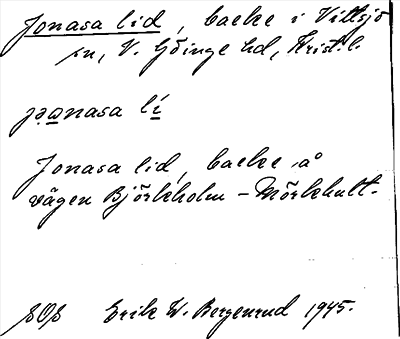 Jonasa lid, backe i Vittsjö
sn, V. Göinge hd, Krist. l.
jo̤a̲nasa lí̲
Jonasa lid, backe å
vägen Björkholm - Mörkhult.
SOS Erik W. Bergenrud 1945.